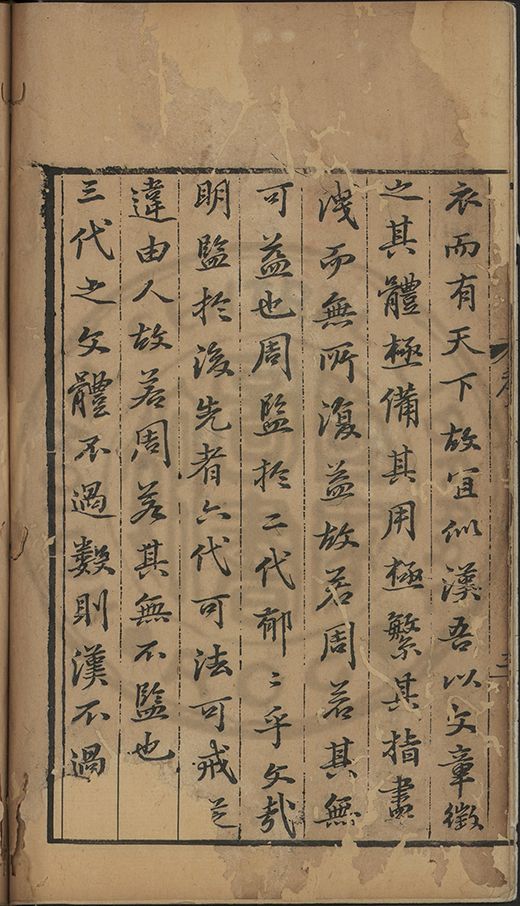 衣而有天下故宜似漢吾以文章徵
之其體極備其用極繁其指盡
洩而無所復益故若周若其無
可益也周監於二代郁〻乎文哉
明監於後先者六代可法可戒是
違由人故若周若其無不監也
三代之文體不過數則漢不過
三